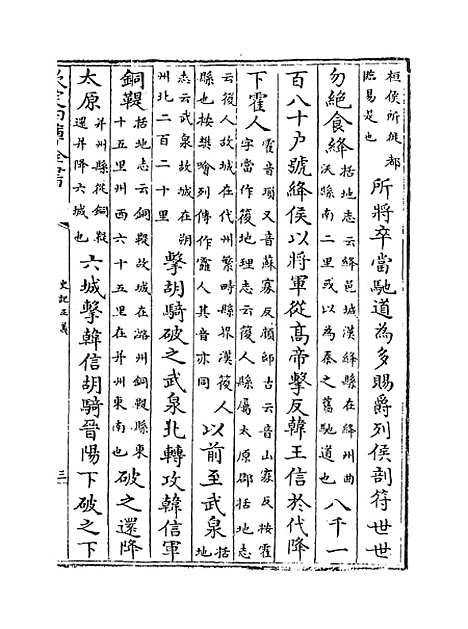 桓侯所徙都臨易是也所將卒當馳道為多賜爵列侯剖符世世
勿絶食絳括地志云絳邑城漢絳縣在絳州曲沃縣南二里或以為秦之舊馳道也八千一
百八十户號絳侯以將軍從髙帝擊反韓王信於代降
下霍人霍音瑣又音蘇寡反顔師古云音山寡反按霍字當作葰地理志云葰人縣屬太原郡括地志
云葰人故城在代州繁畤縣界漢葰人縣也按樊噲列傳作靃人其音亦同以前至武泉括地
志云武泉故城在朔州北二百二十里擊胡騎破之武泉北轉攻韓信軍
銅鞮括地志云銅鞮故城在潞州銅鞮縣東十五里州西六十五里在并州東南也破之還降
太原并州縣從銅鞮還并降六城也六城擊韓信胡騎晉陽下破之下
欽定四庫全書
史記正義
三